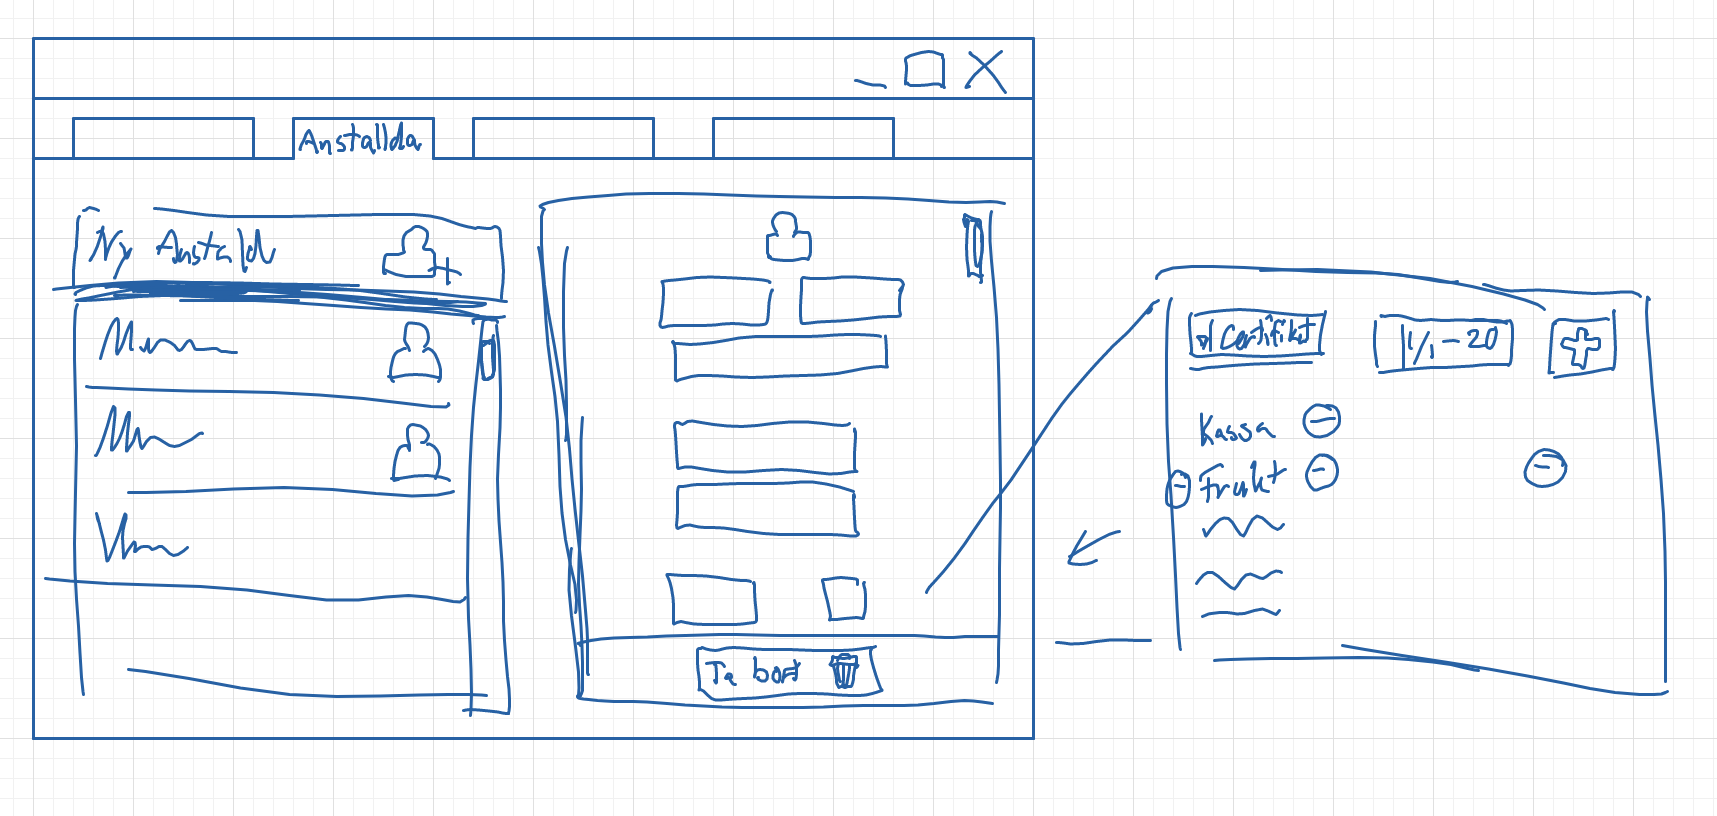 Anstallda
Ny Anstald
Ta bort
Certifikt
1/1-20
Kassa
Frukt